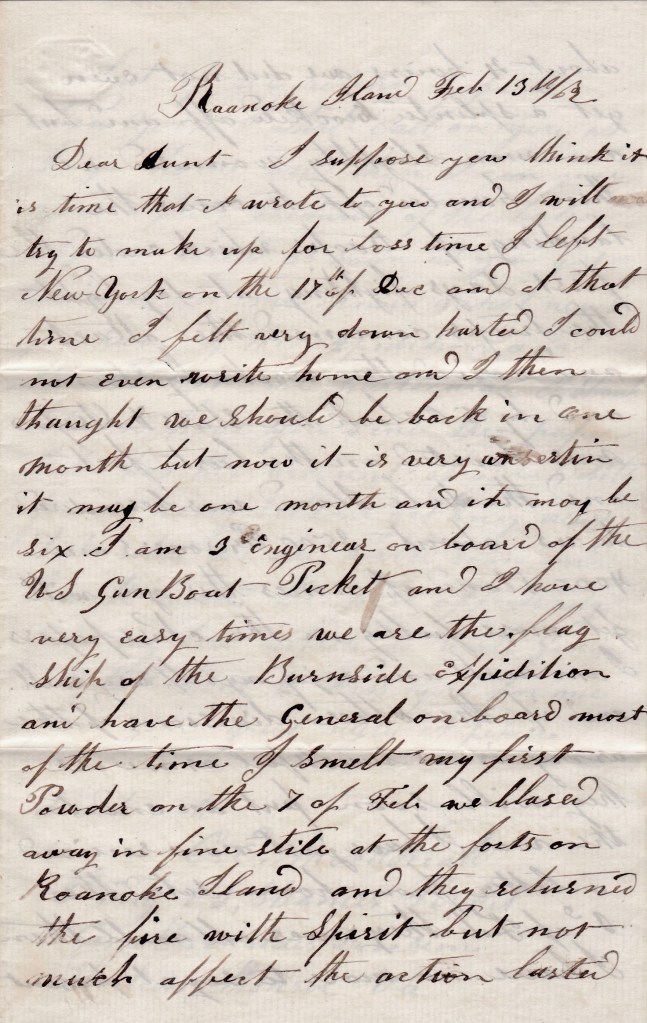 Roanoke Iland Feb 13th/62
Dear Aunt I suppose yew think it
is time that I wrote to yew and I will
try to make up for loss time I left
New York on the 17th of Dec and at that
time I felt very down harted I could
not even write home and I then
thaught we should be back in one
month but now it is very unsertin
it may be one month and it may be
six I am 3d Enginear on board of the
US Gun Boat Picket and I have
very easy times we are the flag
ship of the Burnside Expidition
and have the General on board most
of the time I smelt my first
Powder on the 7 of Feb we blased
away in fine stile at the forts on
Roanoke Iland and they returned
the fire with Spirit but not
much affect the action lasted